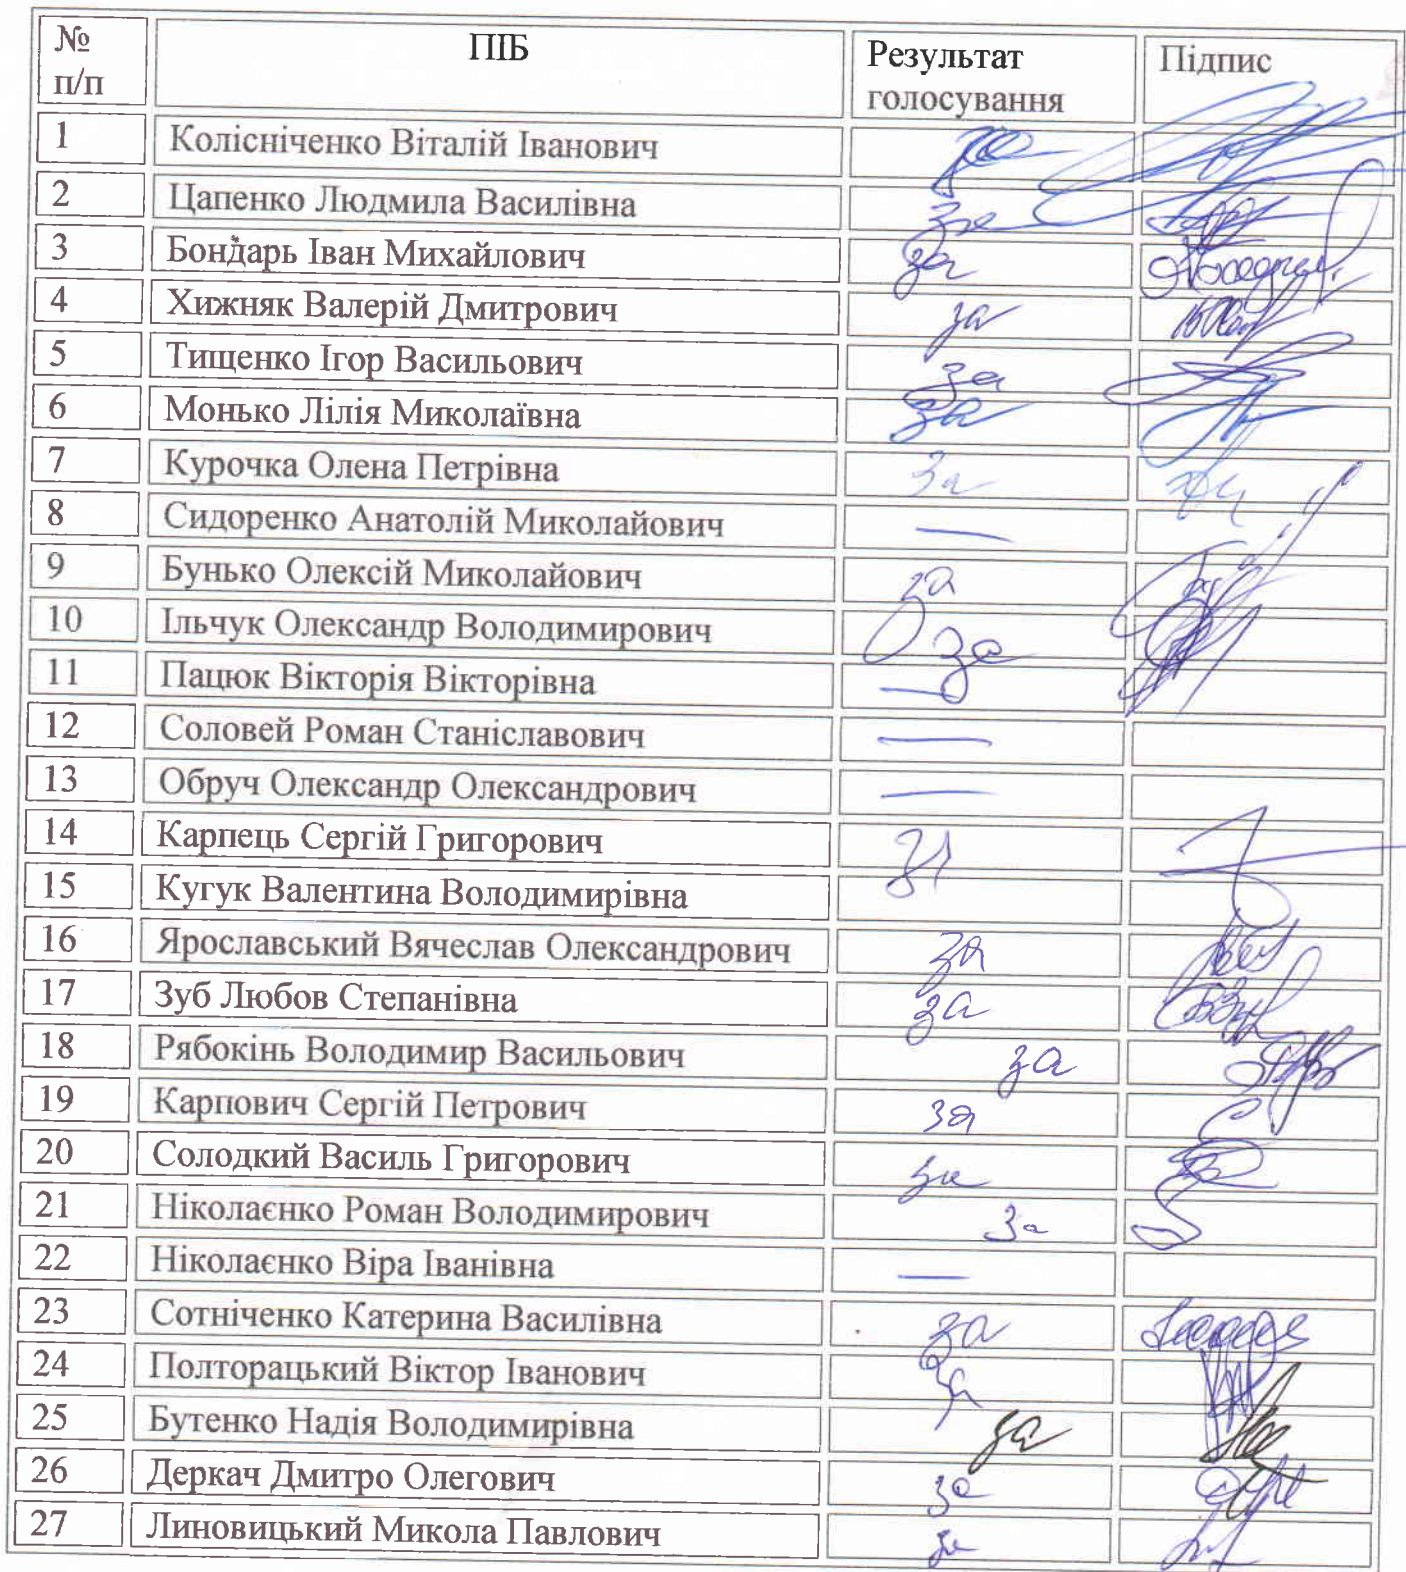 № п/п ПІБ Результат голосування Підпис
1 Колісніченко Віталій Іванович за
2 Цапенко Людмила Василівна за
3 Бондарь Іван Михайлович за
4 Хижняк Валерій Дмитрович за
5 Тищенко Ігор Васильович за
6 Монько Лілія Миколаївна за
7 Курочка Олена Петрівна за
8 Сидоренко Анатолій Миколайович —
9 Бунько Олексій Миколайович за
10 Ільчук Олександр Володимирович за
11 Пацюк Вікторія Вікторівна —
12 Соловей Роман Станіславович —
13 Обруч Олександр Олександрович —
14 Карпець Сергій Григорович за
15 Кугук Валентина Володимирівна
16 Ярославський Вячеслав Олександрович за
17 Зуб Любов Степанівна за
18 Рябокінь Володимир Васильович за
19 Карпович Сергій Петрович за
20 Солодкий Василь Григорович за
21 Ніколаєнко Роман Володимирович за
22 Ніколаєнко Віра Іванівна —
23 Сотніченко Катерина Василівна за
24 Полторацький Віктор Іванович за
25 Бутенко Надія Володимирівна за
26 Деркач Дмитро Олегович за
27 Линовицький Микола Павлович за